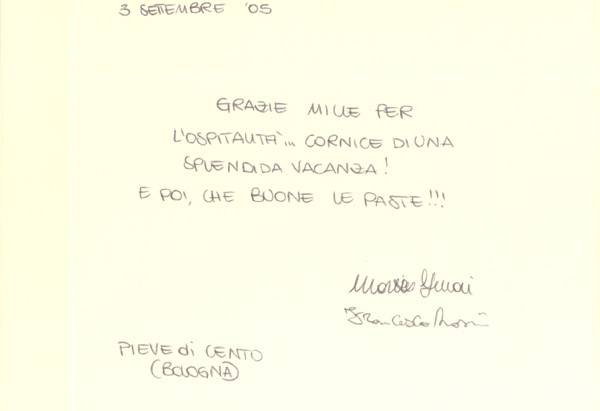 3 SETTEMBRE '05
GRAZIE MILLE PER
L'OSPITALITÀ... CORNICE DI UNA
SPLENDIDA VACANZA!
E POI, CHE BUONE LE PASTE!!!
Francesco
PIEVE di CENTO
(BOLOGNA)